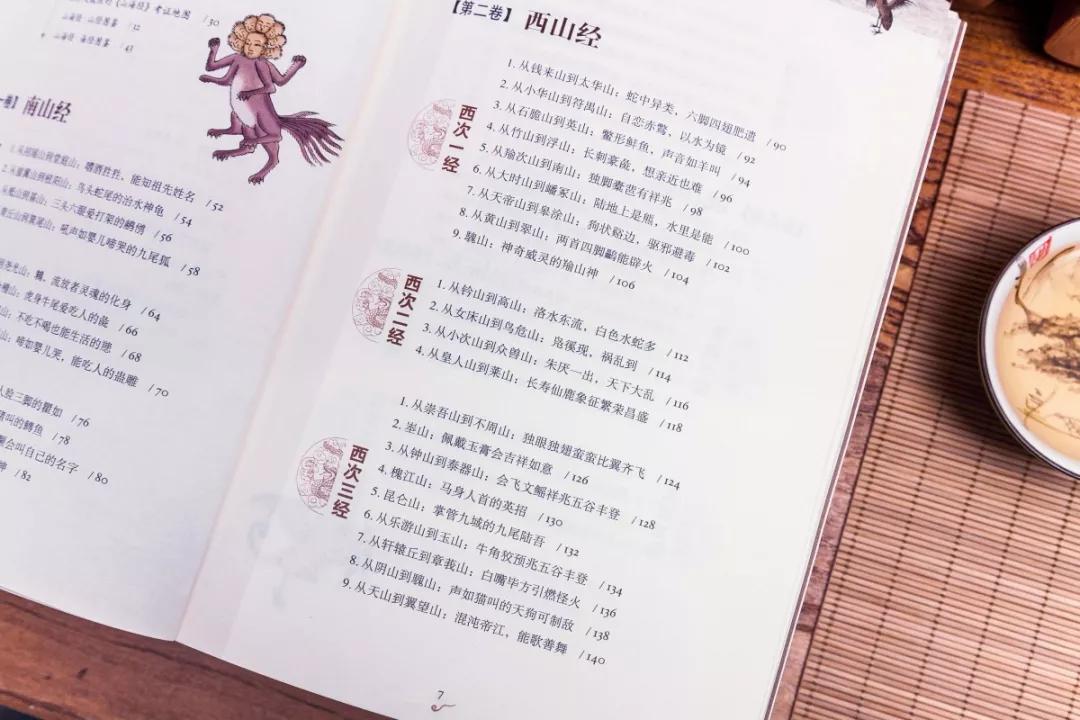 山海经》考证地图 /30
山海经·山经图鉴 /12
山海经·海经图鉴 /43
卷】 南山经
能知祖先姓名 /52
鸟头蛇尾的治水神龟 /54
三头六眼爱打架的 /56
吼声如婴儿啼哭的九尾狐 /58
尧光山：猾，流放者灵魂的化身 /64
虎身牛尾爱吃人的彘 /66
不吃不喝也能生活的 /68
啼如婴儿哭，能吃人的蛊雕 /70
人脸三脚的瞿如 /76
猪叫的鱄鱼 /78
会叫自己的名字 /80
神 /82
【第二卷】 西山经
西次一经
1. 从钱来山到太华山：蛇中异类，六脚四翅肥遗 /90
2. 从小华山到符禺山：自恋赤鷩，以水为镜 /92
3. 从石脆山到英山：鳖形鲜鱼，声音如羊叫 /94
4. 从竹山到浮山：长刺豪彘，想亲近也难 /96
5. 从羭次山到南山：独脚橐𩇯有祥兆 /98
6. 从大时山到嶓冢山：陆地上是熊，水里是能 /100
7. 从天帝山到皋涂山：狗状谿边，驱邪避毒 /102
8. 从黄山到翠山：两首四脚鸓能辟火 /104
9. 騩山：神奇威灵的羭山神 /106
西次二经
1. 从钤山到高山：洛水东流，白色水蛇多 /112
2. 从女床山到鸟危山：凫徯现，祸乱到 /114
3. 从小次山到众兽山：朱厌一出，天下大乱 /116
4. 从皇人山到莱山：长寿仙鹿象征繁荣昌盛 /118
西次三经
1. 从崇吾山到不周山：独眼独翅蛮蛮比翼齐飞 /124
2. 峚山：佩戴玉膏会吉祥如意 /126
3. 从钟山到泰器山：会飞文鳐祥兆五谷丰登 /128
4. 槐江山：马身人首的英招 /130
5. 昆仑山：掌管九城的九尾陆吾 /132
6. 从乐游山到玉山：牛角狡预兆五谷丰登 /134
7. 从轩辕丘到章莪山：白嘴毕方引燃怪火 /136
8. 从阴山到騩山：声如猫叫的天狗可制敌 /138
9. 从天山到翼望山：混沌帝江，能歌善舞 /140
7